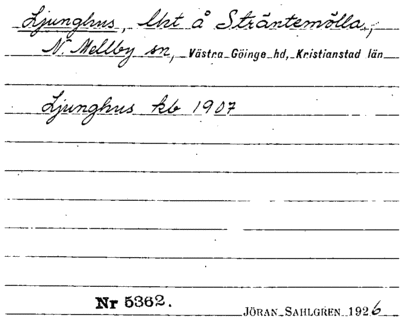 Ljunghus, lht å Sträntemölla,
N. Mellby sn, Västra Göinge hd, Kristianstad län
Ljunghus kb 1907
Nr 5362.
JÖRAN SAHLGREN 1926